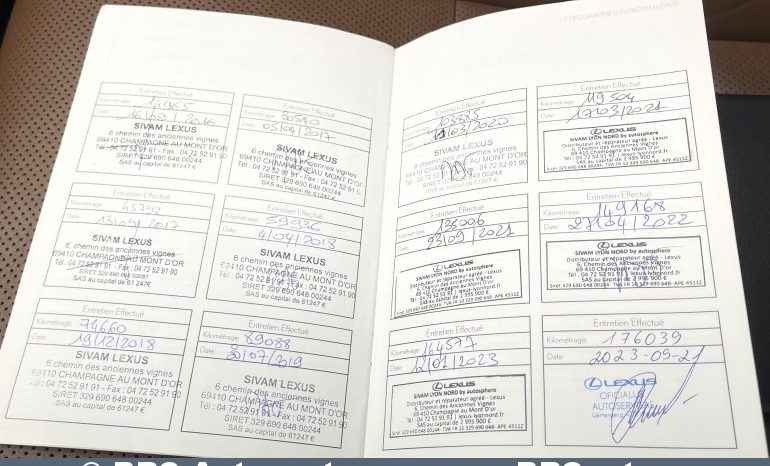 LE PROGRAMME D'ENTRETIEN LEXUS
Entretien Effectué
Kilométrage: 14965
Date:
SIVAM LEXUS
6 chemin des anciennes vignes
69410 CHAMPAGNE AU MONT D'OR
Tél : 04 72 52 91 91 - Fax : 04 72 52 91 90
SIRET 329 690 648 00087
SAS au capital de 61 247€
Entretien Effectué
Kilométrage:
Date: 05/04/2017
SIVAM LEXUS
6, chemin des anciennes vignes
69410 CHAMPAGNE AU MONT D'OR
Tél : 04 72 52 91 91 - Fax : 04 72 52 91 90
SIRET 329 690 648 00244
SAS au capital de 61247 €
Entretien Effectué
Kilométrage: 45792
Date: 13/09/2017
SIVAM LEXUS
6, chemin des anciennes vignes
69410 CHAMPAGNE AU MONT D'OR
Tél : 04 72 52 91 91 - Fax : 04 72 52 91 90
SIRET 329 690 648 00087
SAS au capital de 61 247€
Entretien Effectué
Kilométrage: 59936
Date: 4/04/2018
SIVAM LEXUS
6 chemin des anciennes vignes
69410 CHAMPAGNE AU MONT D'OR
Tél : 04 72 52 91 91 - Fax : 04 72 52 91 90
SIRET 329 690 648 00244
SAS au capital de 61247 €
Entretien Effectué
Kilométrage: 74660
Date: 19/12/2018
SIVAM LEXUS
6 chemin des anciennes vignes
69410 CHAMPAGNE AU MONT D'OR
Tél : 04 72 52 91 91 - Fax : 04 72 52 91 90
SIRET 329 690 648 00244
SAS au capital de 61247 €
Entretien Effectué
Kilométrage: 89088
Date: 30/07/2019
SIVAM LEXUS
6 chemin des anciennes vignes
69410 CHAMPAGNE AU MONT D'OR
Tél : 04 72 52 91 91 - Fax : 04 72 52 91 90
SIRET 329 690 648 00244
SAS au capital de 61247 €
Entretien Effectué
Kilométrage:
Date: /03/2020
SIVAM LEXUS
6 chemin des anciennes vignes
69410 CHAMPAGNE AU MONT D'OR
Tél : 04 72 52 91 91 - Fax : 04 72 52 91 90
SIRET 329 690 648 00244
SAS au capital de 61247 €
Entretien Effectué
Kilométrage: 119504
Date: 17/03/2021
LEXUS
SIVAM LYON NORD by autosphere
Distributeur et réparateur agréé - Lexus
6, Chemin des Anciennes Vignes
69 410 Champagne au Mont d'Or
Tél : 04 72 52 91 91 / lexus-lyonnord.fr
SAS au capital de 2 995 900 €
Siret 329 690 648 00244 TVA FR 10 329 690 648 APE 4511Z
Entretien Effectué
Kilométrage: 135006
Date: 23/09/2021
LEXUS
SIVAM LYON NORD by autosphere
Distributeur et réparateur agréé - Lexus
6, Chemin des Anciennes Vignes
69 410 Champagne au Mont d'Or
Tél : 04 72 52 91 91 / lexus-lyonnord.fr
SAS au capital de 2 995 900 €
Siret 329 690 648 00244 TVA FR 10 329 690 648 APE 4511Z
Entretien Effectué
Kilométrage: 149168
Date: 27/04/2022
LEXUS
SIVAM LYON NORD by autosphere
Distributeur et réparateur agréé - Lexus
6, Chemin des Anciennes Vignes
69 410 Champagne au Mont d'Or
Tél : 04 72 52 91 91 / lexus-lyonnord.fr
SAS au capital de 2 995 900 €
Siret 329 690 648 00244 TVA FR 10 329 690 648 APE 4511Z
Entretien Effectué
Kilométrage: 164577
Date: 2/01/2023
LEXUS
SIVAM LYON NORD by autosphere
Distributeur et réparateur agréé - Lexus
6, Chemin des Anciennes Vignes
69 410 Champagne au Mont d'Or
Tél : 04 72 52 91 91 / lexus-lyonnord.fr
SAS au capital de 2 995 900 €
Siret 329 690 648 00244 TVA FR 10 329 690 648 APE 4511Z
Entretien Effectué
Kilométrage: 176039
Date: 2023-09-21
LEXUS
OFICIALUS